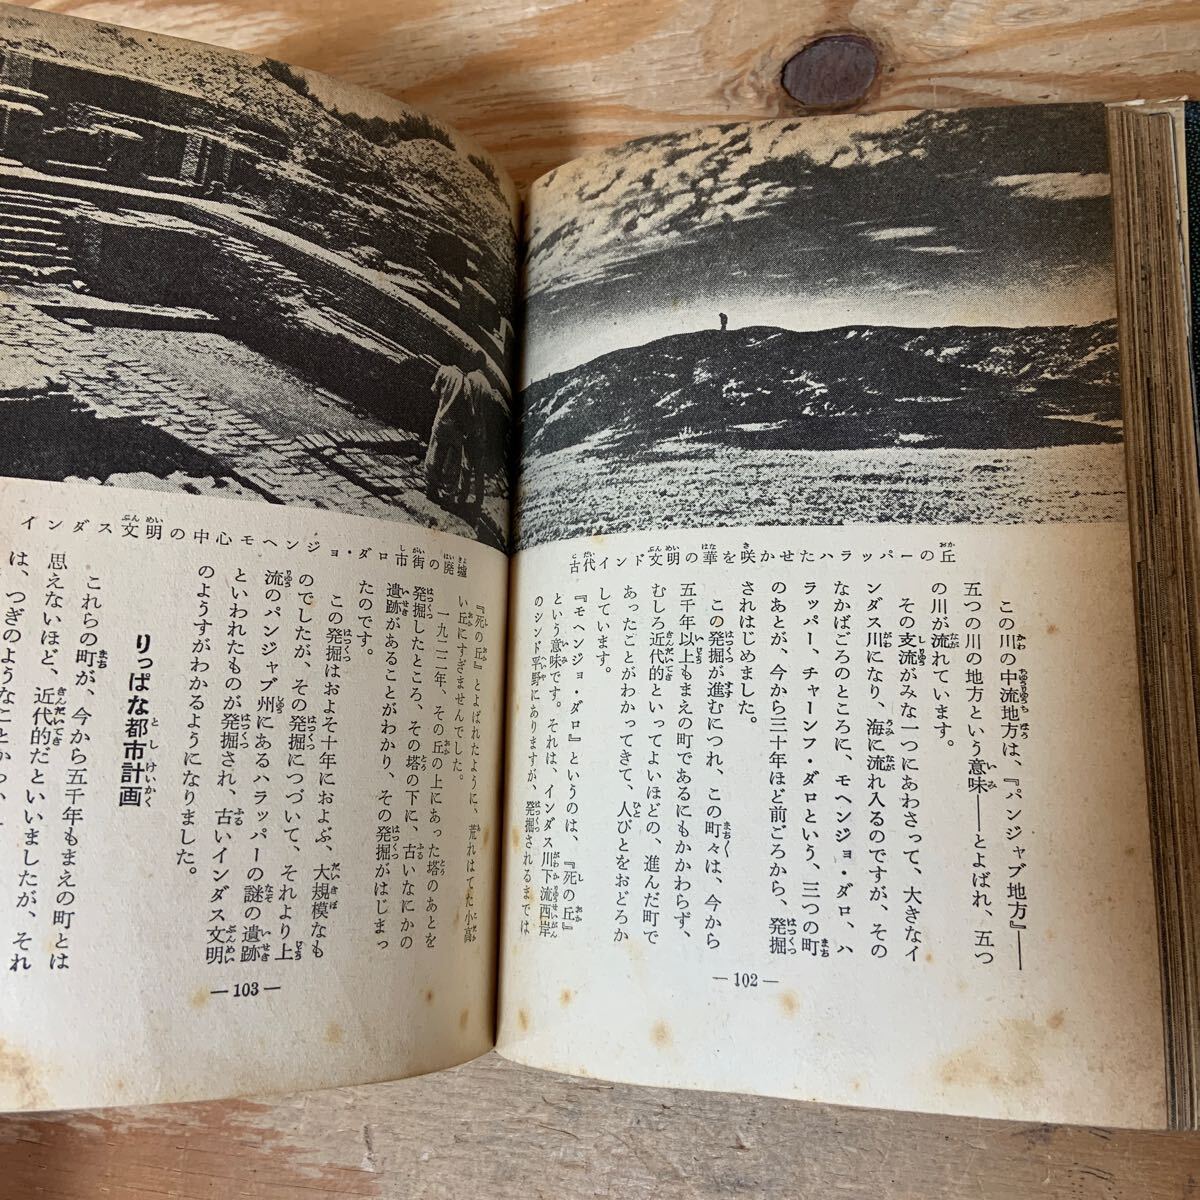 古代インド文明の華を咲かせたハラッパーの丘
この川の中流地方は、『パンジャブ地方』――
五つの川の地方という意味――とよばれ、五つ
の川が流れています。
その支流がみな一つにあわさって、大きなイ
ンダス川になり、海に流れ入るのですが、その
なかばごろのところに、モヘンジョ・ダロ、ハ
ラッパー、チャーンフ・ダロという、三つの町
のあとが、今から三十年ほど前ごろから、発掘
されはじめました。
この発掘が進むにつれ、この町々は、今から
五千年以上もまえの町であるにもかかわらず、
むしろ近代的といってよいほどの、進んだ町で
あったことがわかってきて、人びとをおどろか
しています。
『モヘンジョ・ダロ』というのは、『死の丘』
という意味です。それは、インダス川下流西岸
のシンド平野にありますが、発掘されるまでは
―102―
インダス文明の中心モヘンジョ・ダロ市街の廃墟
『死の丘』とよばれたように、荒れはてた小高
い丘にすぎませんでした。
一九二二年、その丘の上にあった塔のあとを
発掘したところ、その塔の下に、古いなにかの
遺跡があることがわかり、その発掘がはじまっ
たのです。
この発掘はおよそ十年におよぶ、大規模なも
のでしたが、その発掘につづいて、それより上
流のパンジャブ州にあるハラッパーの謎の遺跡
といわれたものが発掘され、古いインダス文明
のようすがわかるようになりました。
りっぱな都市計画
これらの町が、今から五千年もまえの町とは
思えないほど、近代的だといいましたが、それ
は、つぎのようなことか
―103―